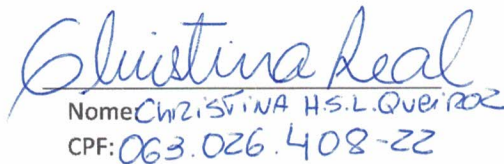 Christina Leal
Nome: CHRISTINA H.S.L. QUEIROZ
CPF: 063.026.408-22